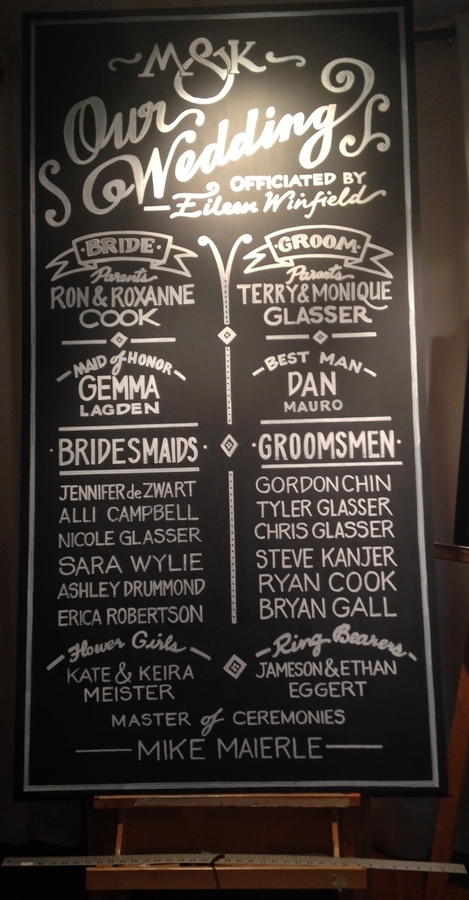 M&K
Our
Wedding
OFFICIATED BY
Eileen Winfield
BRIDE
Parents
RON & ROXANNE
COOK
MAID of HONOR
GEMMA
LAGDEN
BRIDESMAIDS
JENNIFER de ZWART
ALLI CAMPBELL
NICOLE GLASSER
SARA WYLIE
ASHLEY DRUMMOND
ERICA ROBERTSON
Flower Girls
KATE & KEIRA
MEISTER
GROOM
Parents
TERRY & MONIQUE
GLASSER
BEST MAN
DAN
MAURO
GROOMSMEN
GORDON CHIN
TYLER GLASSER
CHRIS GLASSER
STEVE KANJER
RYAN COOK
BRYAN GALL
Ring Bearers
JAMESON & ETHAN
EGGERT
MASTER of CEREMONIES
MIKE MAIERLE